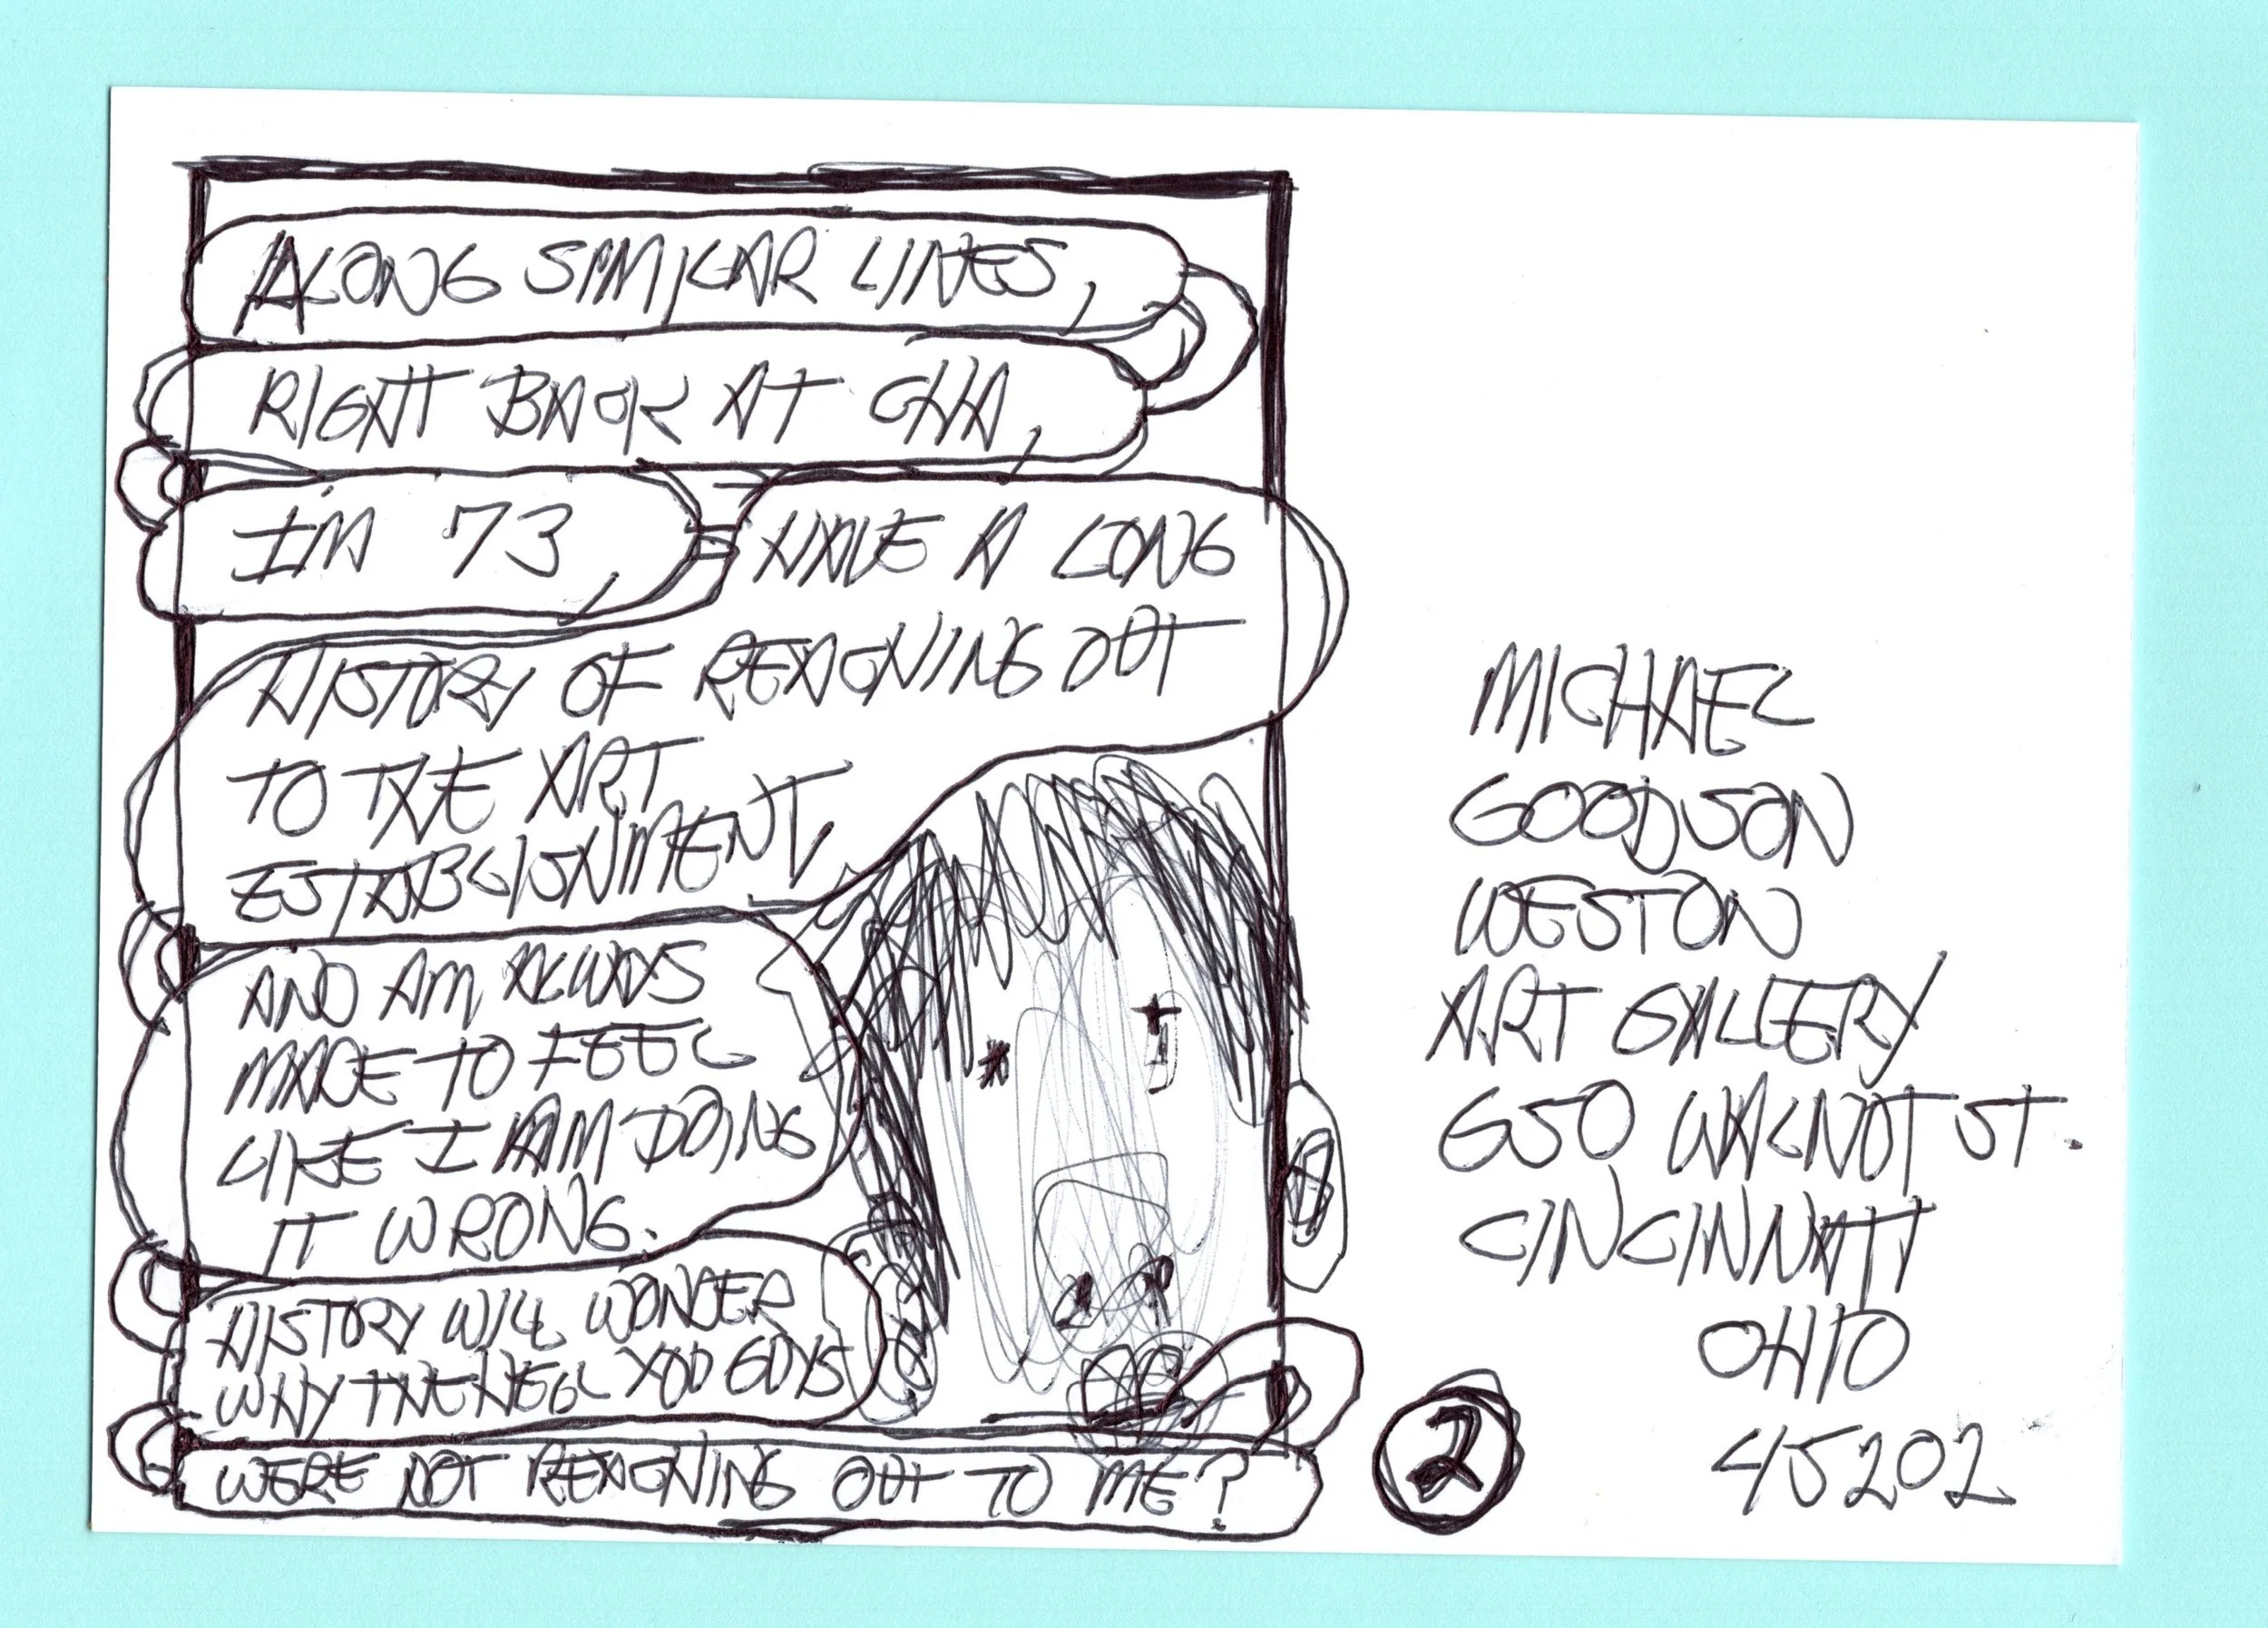 ALONG SIMILAR LINES,
RIGHT BACK AT CHA,
I'M 73, HAVE A LONG
HISTORY OF REACHING OUT
TO THE ART
ESTABLISHMENT,
AND AM ALWAYS
MADE TO FEEL
LIKE I AM DOING
IT WRONG.
HISTORY WILL WONDER
WHY THE HELL YOU GUYS
WERE NOT REACHING OUT TO ME?
2
MICHAEL
GOODSON
WESTON
ART GALLERY
650 WALNUT ST.
CINCINNATI
OHIO
45202